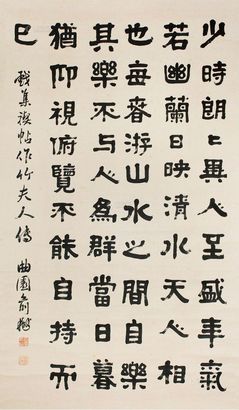 少時朗〻異人至盛年氣
若幽蘭日映清水天人相
也每春游山水之間自樂
其樂不与人爲群當日暮
猶仰視俯覽不能自持而
已
戲集禊帖作竹夫人傳 曲園俞樾